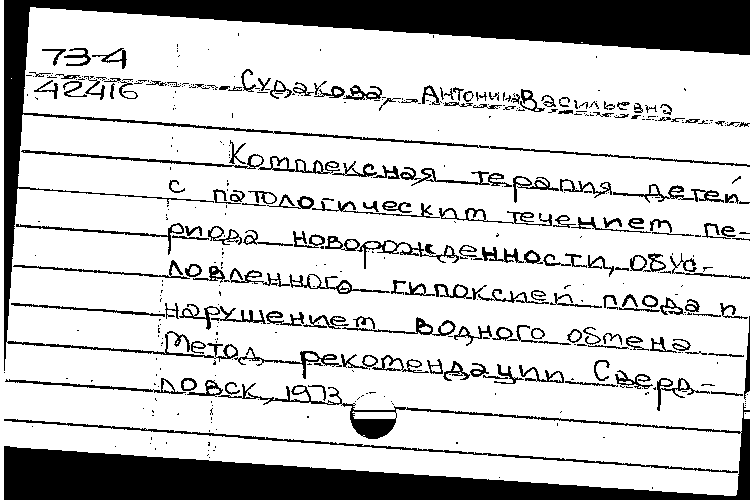 73-4
42416
Судакова, Антонина Васильевна
Комплексная терапия детей
с патологическим течением пе-
риода новорожденности, обус-
ловленного гипоксией плода и
нарушением водного обмена.
Метод. рекомендации. Сверд-
ловск, 1973